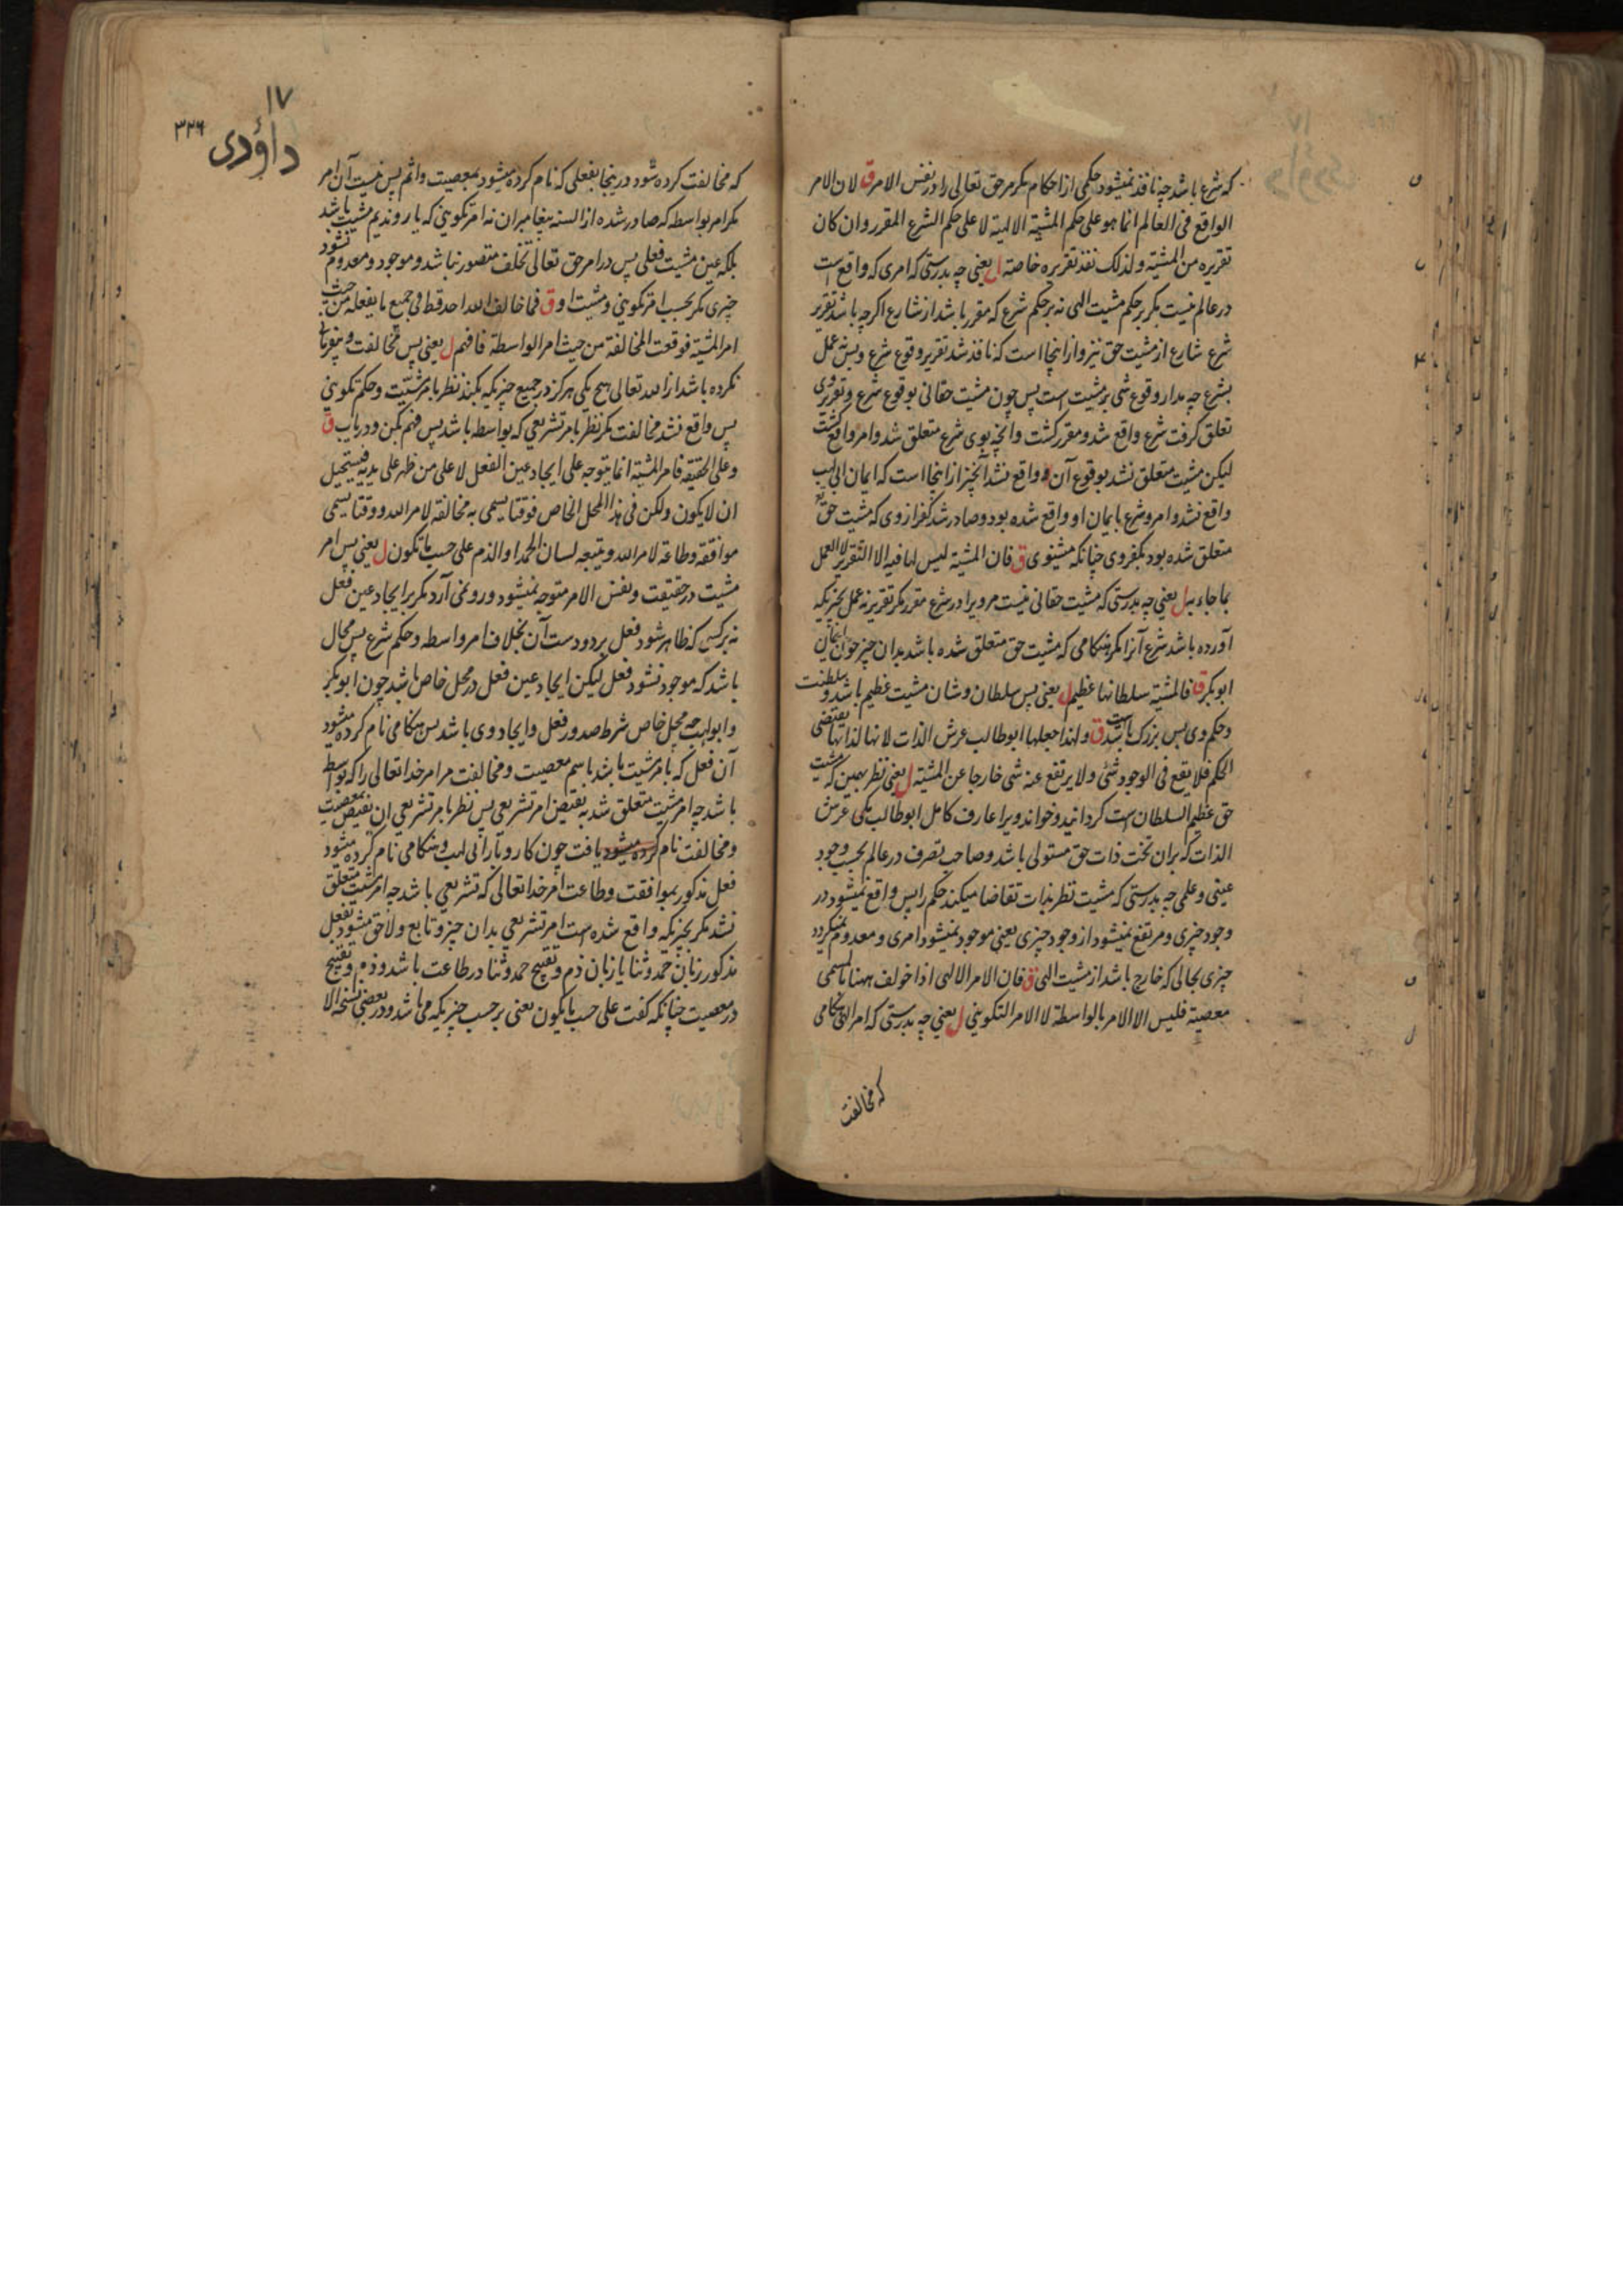 که شرع باشد چه نافذ نمیشود حکمی از احکام مکر مر حق تعالی را در نفس الامر ق لان الامر
الواقع فی العالم انما هو علی حکم المشیة الالهیة لا علی حکم الشرع المقرر وان کان
تقریره من المشیة ولذلک نفذ تقریره خاصة ل یعنی چه بدرستی که امری که واقع است
در عالم نیست مکر بر حکم مشیت الهی نه بر حکم شرع که مقرر باشد از شارع اکرچه باشد تقریر
شرع شارع از مشیت حق نیز و از اینجا است که نافذ شد تقریر وقوع شرع و پس نه عمل
بشرع چه مدار وقوع شی بر مشیت است پس چون مشیت حقانی بوقوع شرع و تقریر وی
تعلق کرفت شرع واقع شد و مقرر کشت وانچه بوی شرع متعلق شد و امر واقع کشت
لیکن مشیت متعلق نشد بوقوع آن واقع نشد آنچیز از اینجا است که ایمان ابی لهب
واقع نشد و امر و شرع بایمان او واقع شده بود و صادر شد کفر از وی که مشیت حق
متعلق شده بود بکفر وی چنانکه میشنوی ق فان المشیة لیس لها فیه الا التقریر لا العمل
بما جاء به ل یعنی چه بدرستی که مشیت حقانی نیست مرویرا در شرع مقرر مکر تقریر نه عمل بچیزیکه
آورده باشد شرع آنرا مکر هنکامی که مشیت حق متعلق شده باشد بدان چیز چون ایمان
ابوبکر ق فالمشیة سلطانها عظیم ل یعنی پس سلطان و شان مشیت عظیم باشد و سلطنت
و حکم وی بس بزرک باشد ق ولهذا جعلها ابو طالب عرش الذات لانها لذاتها یقتضی
الحکم فلا یقع فی الوجود شئ ولا یرتفع عنه شی خارجا عن المشیة ل یعنی نظر بهمین که مشیت
حق عظیم السلطان است کردانید و خواند ویرا عارف کامل ابو طالب مکی عرش
الذات که بران تخت ذات حق مستولی باشد و صاحب تصرف در عالم بحسب وجود
عینی و علمی چه بدرستی که مشیت نظر بذات تقاضا میکند حکم را پس واقع نمیشود در
وجود چیزی و مرتفع نمیشود از وجود چیزی یعنی موجود نمیشود امری و معدوم نمیکردد
چیزی بحالی که خارج باشد از مشیت الهی ق فان الامر الالهی اذا خولف ههنا بالمسمی
معصیة فلیس الا الامر بالواسطة لا الامر التکوینی ل یعنی چه بدرستی که امر الهی هنکامی
که مخالفت
۱۷
داؤدی
۳۲۶
که مخالفت کرده شود در ینجا بفعلی که نام کرده میشود بمعصیت و اثم پس نیست آن امر
مکر امر بواسطه که صادر شده از السنه پیغامبران نه امر تکوینی که مشیت باشد
بلکه عین مشیت فعلی پس در امر حق تعالی تخلف متصور نباشد و موجود و معدوم نشود
چیزی مکر بحسب امر تکوینی و مشیت او ق فما خالف الله احد قط فی جمیع ما یفعله من حیث
امر المشیة فوقعت المخالفة من حیث امر الواسطة فافهم ل یعنی پس مخالفت
نکرده باشد از الله تعالی هیچ یکی هرکز در جمیع چیزیکه بکند نظر بامر مشیت و حکم تکوینی
پس واقع نشد مخالفت مکر نظر بامر تشریعی که بواسطه باشد پس فهم بکن و دریاب ق
وعلی الحقیقة فامر المشیة انما یتوجه علی ایجاد عین الفعل لا علی من ظهر علی یدیه فیستحیل
ان لا یکون ولکن فی هذا المحل الخاص فوقتا یسمی به مخالفة لامر الله ووقتا یسمی
موافقة وطاعة لامر الله ویتبعه لسان الحمد او الذم علی حسب ما یکون ل یعنی پس امر
مشیت در حقیقت و نفس الامر متوجه نمیشود و رو نمی آرد مکر بر ایجاد عین فعل
نه بر کسی که ظاهر شود فعل بر دو دست آن بخلاف امر واسطه و حکم شرع پس محال
باشد که موجود نشود فعل لیکن ایجاد عین فعل در محل خاص باشد چون ابوبکر
و ابو لهب چه محل خاص شرط صدور فعل و ایجاد وی باشد پس هنکامی نام کرده میشود
آن فعل که بامر مشیت باشد باسم معصیت و مخالفت مر امر خدا تعالی را که بواسطه
باشد چه امر مشیت متعلق شد به نقیض امر تشریعی پس نظر بامر تشریعی ان نقیض بمعصیت
و مخالفت نام کرده میشود یافت چون کار و بار ابی لهب و هنکامی نام کرده میشود
فعل مذکور بموافقت و طاعت امر خدا تعالی که تشریعی باشد چه امر مشیت متعلق
نشد مکر بچیزیکه واقع شده است امر تشریعی بدان چیز و تابع و لاحق میشود بفعل
مذکور زبان حمد و ثنا یا زبان ذم و تقبیح حمد و ثنا در طاعت باشد و ذم و تقبیح
در معصیت چنانکه کفت علی حسب ما یکون یعنی بر حسب چیزیکه می باشد و در بعضی نسخ الا